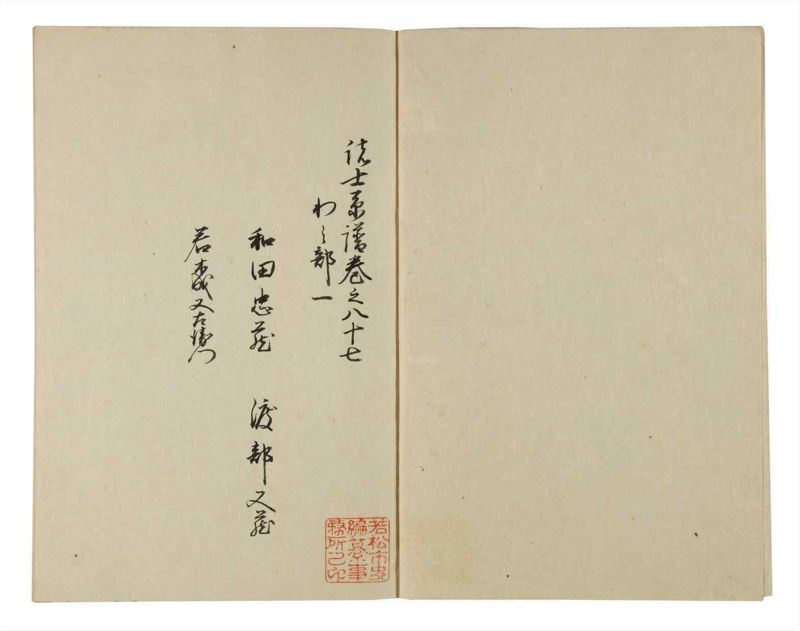 諸士系譜巻之八十七
わ之部一
和田忠蔵　渡部又蔵
若又左衛門
若松市史
編纂事
務所之印